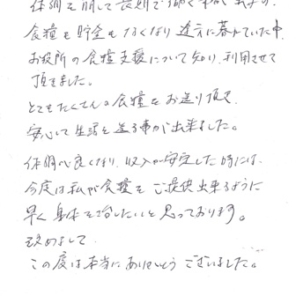 体調を崩して長期で働く事が出来ず、
食糧も貯金もなくなり途方に暮れていた中、
お役所の食糧支援について知り、利用させて
頂きました。
とてもたくさんの食糧をお送り頂き、
安心して生活を送る事が出来ました。
体調が良くなり、収入が安定した時には、
今度は私が食糧をご提供出来るように
早く身体を治したいと思っております。
改めまして
この度は本当にありがとうございました。